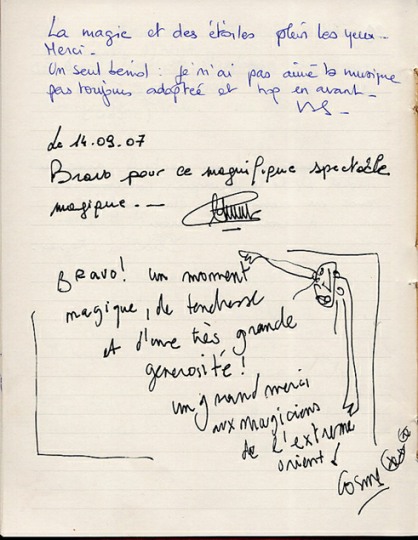 La magie et des étoiles plein les yeux..
Merci.
Un seul bémol : je n'ai pas aimé la musique
pas toujours adaptée et trop en avant.
Le 14.09.07
Bravo pour ce magnifique spectacle
magique...
Bravo! un moment
magique, de tendresse
et d'une très grande
generosité!
un grand merci
aux magiciens
de l'extreme
orient!
Cosme